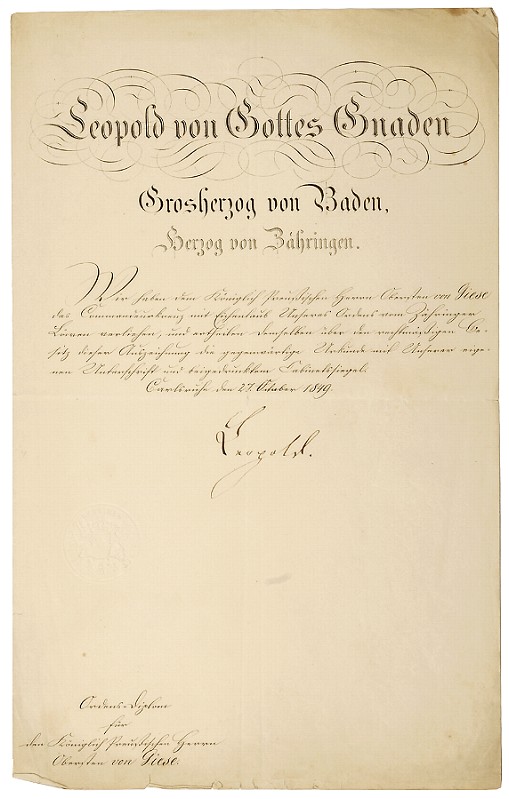 Leopold von Gottes Gnaden
Grosherzog von Baden,
Herzog von Zähringen.
Wir haben dem Königlich Preußischen Herrn Obersten von Giese
das Commandeurkreuz mit Eichenlaub Unseres Ordens vom Zähringer
Löwen verliehen, und ertheilen demselben über den rechtmäßigen Be-
sitz dieser Auszeichnung die gegenwärtige Urkunde mit Unserer eige-
nen Unterschrift und beigedrucktem Cabinetssiegel.
Carlsruhe den 27. October 1849.
Leopold.
Ordens-Diplom
für
den Königlich Preußischen Herrn
Obersten von Giese.